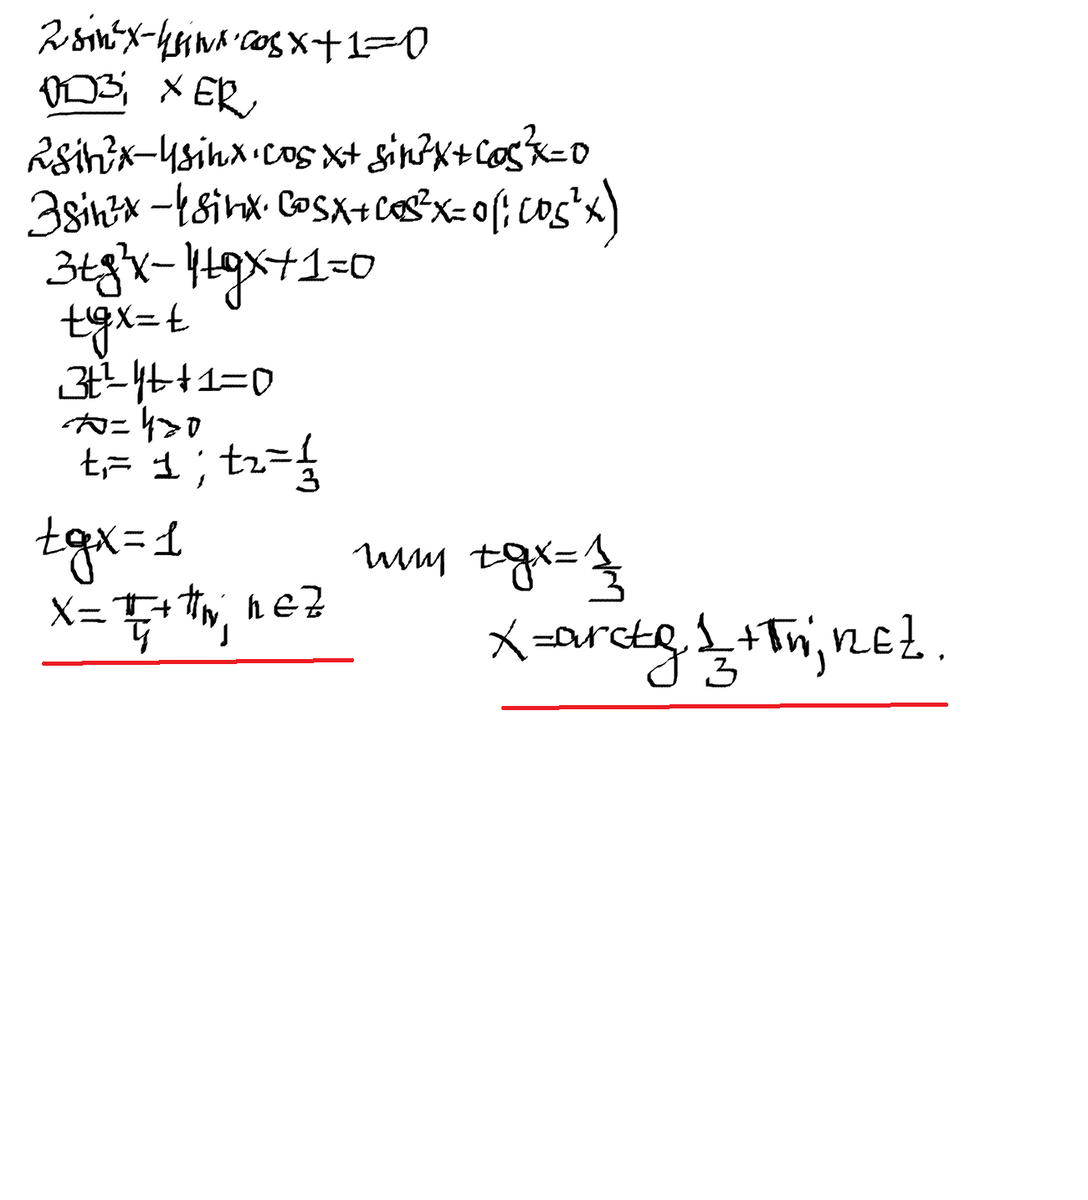 2sin²x-4sinx·cosx+1=0
ОДЗ: x∈R,
2sin²x-4sinx·cosx+sin²x+cos²x=0
3sin²x-4sinx·cosx+cos²x=0(:cos²x)
3tg²x-4tgx+1=0
tgx=t
3t²-4t+1=0
D=4>0
t₁=1; t₂=1/3
tgx=1 или tgx=1/3
x=π/4+πn, n∈Z
x=arctg 1/3+πn, n∈Z.